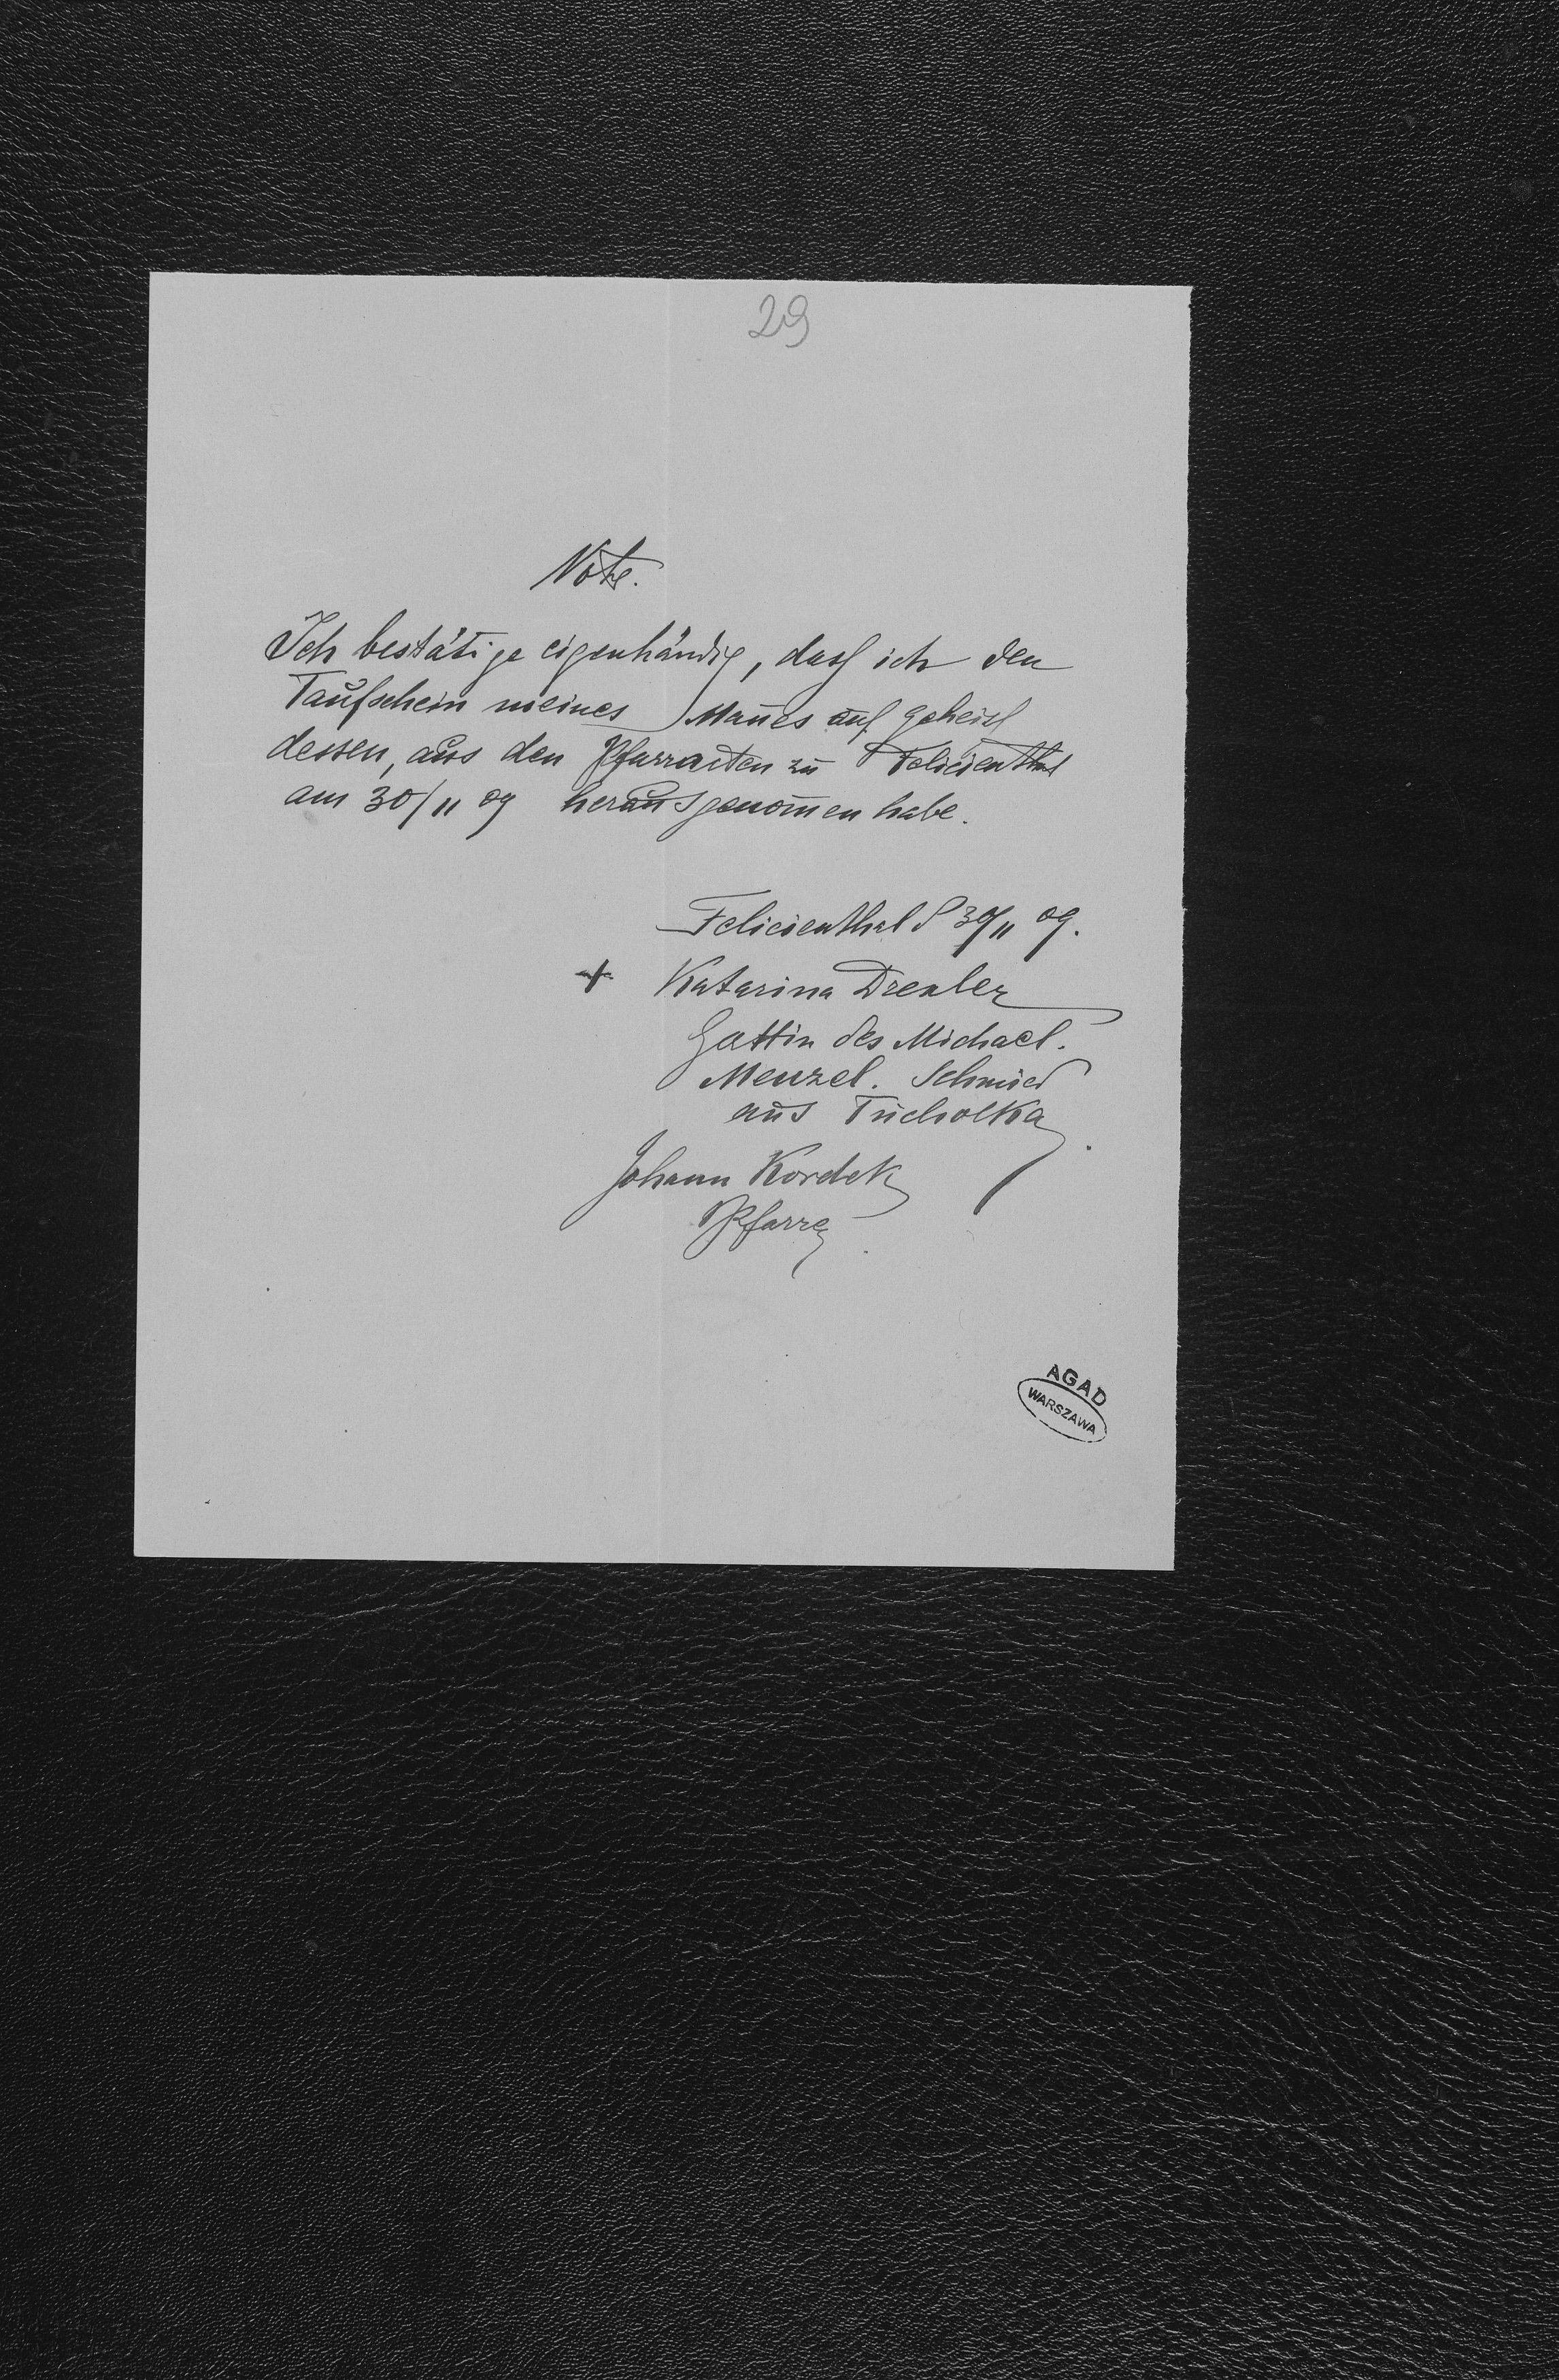 29
Note.
Ich bestätige eigenhändig, dass ich den
Taufschein meines Mañes auf Geheiß
dessen, aus den Pfarrakten zu Felicienthal
am 30/11 09 herausgenom̄en habe.
Felicienthal d 30/11 09.
+ Katarina Drexler
Gattin des Michael.
Menzel. Schmied
aus Tucholka.
Johann Kordek
Pfarrer
AGAD
WARSZAWA